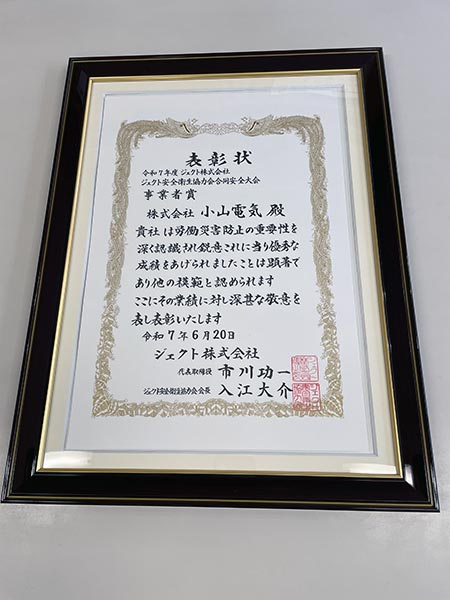 表彰状
令和7年度 ジェクト株式会社
ジェクト安全衛生協力会合同安全大会
事業者賞
株式会社 小山電気 殿
貴社は労働災害防止の重要性を
深く認識され鋭意これに当り優秀な
成績をあげられましたことは顕著で
あり他の模範と認められます
ここにその業績に対し深甚な敬意を
表し表彰いたします
令和7年6月20日
ジェクト株式会社
代表取締役 市川功一
ジェクト安全衛生協力会会長 入江大介